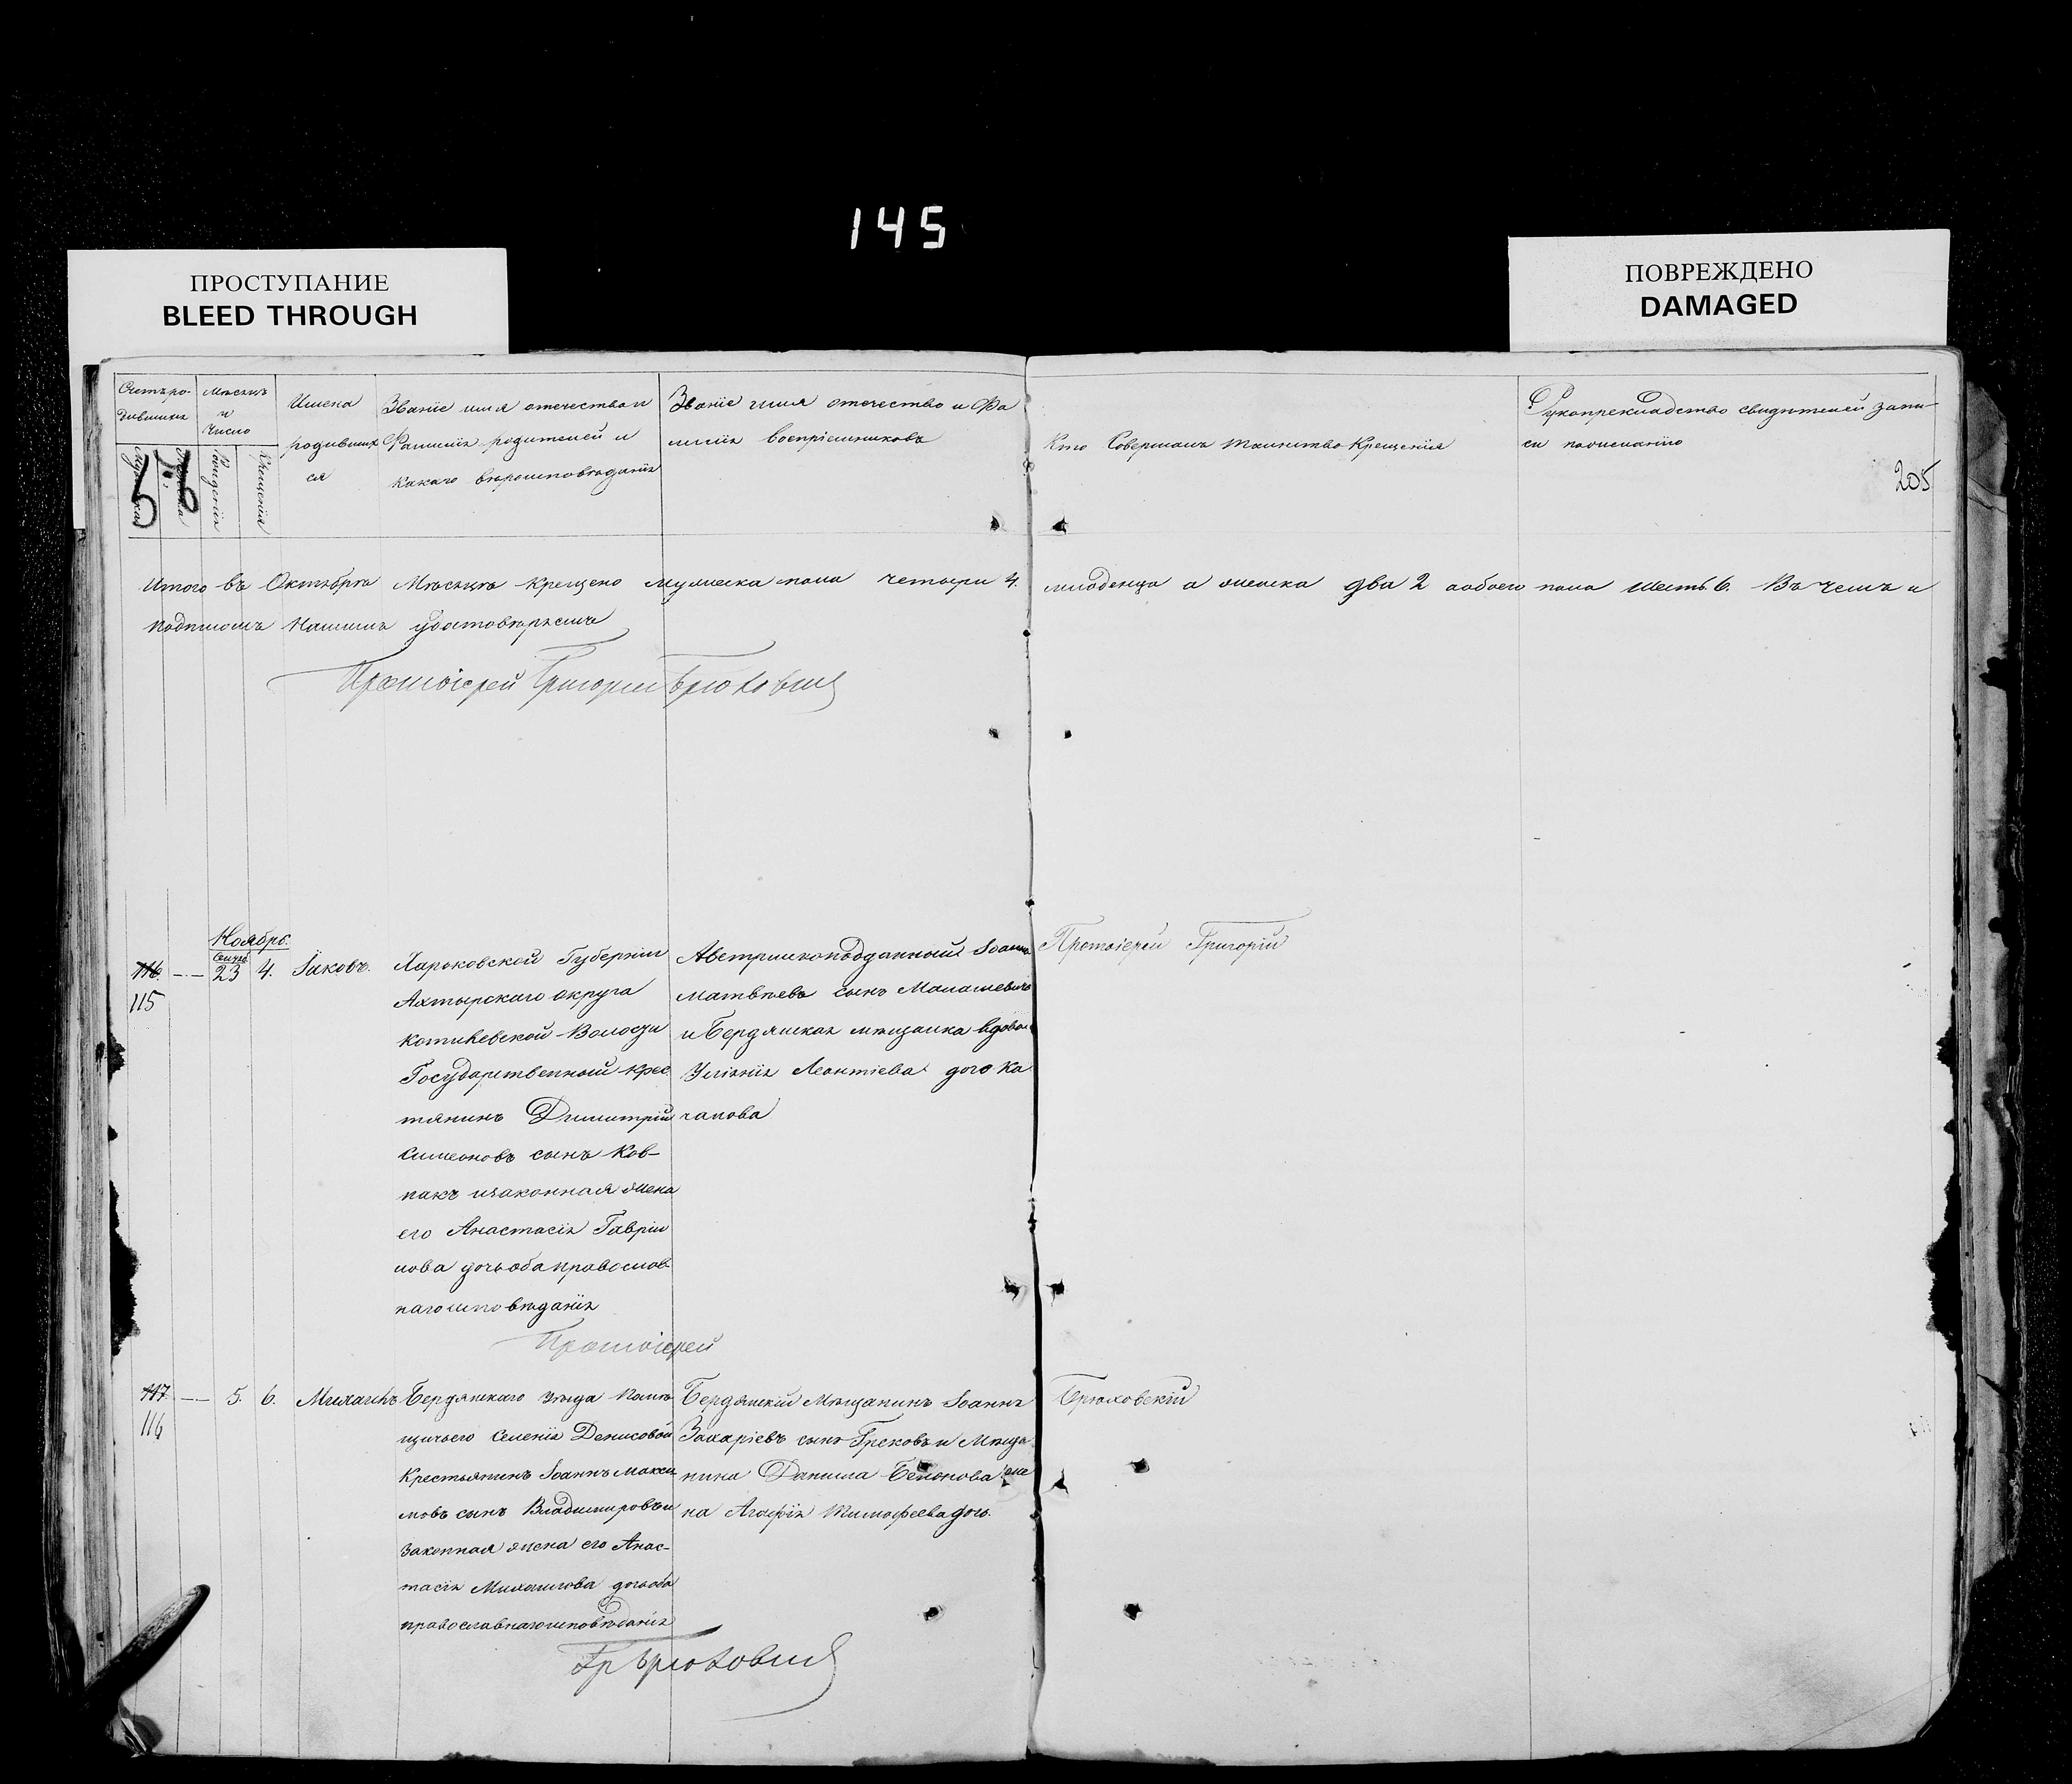 145
ПРОСТУПАНИЕ
BLEED THROUGH
ПОВРЕЖДЕНО
DAMAGED
Счетъ родившихъ
Мѣсяцъ и Число
Рожденія
Крещенія
Имена родивших
ся
Званіе имя отечество и
Фамилія родителей и
какаго вѣроисповѣданія
Званіе имя отечество и Фа
милія восприемниковъ
Кто Совершалъ таинство Крещенія
Рукоприкладство свидѣтелей запи-
си
205
Итого въ Октябрѣ Мѣсяцѣ Крещено мужеска пола четыри 4. младенца а женска два 2 а обоего пола шесть 6. Въ чемъ и
подписомъ Нашимъ удостовѣряемъ
Протоіерей Григорій Брюховскій
Ноябрь.
116 23 4. Іаковъ.
115
Харьковской Губерніи
Ахтырскаго округа
Котилевской Волости
Государственный крес
тянинъ Димитрій
Симеоновъ сынъ Ков-
пакъ изаконная жена
его Анастасія Гаврии
лова дочь оба православ
наго исповѣданія
Австрийскоподданный Іоаннъ
Матвѣевъ сынъ
и Бердянская мѣщанка вдова
Леонтіева дочь Ка
чанова
Протоіерей Григорій
Протоіерей
117 5. 6. Михаилъ
116
Бердянскаго уѣзда Помѣ
щичьего Селенія Денисовой
Крестьянинъ Іоаннъ Макси
мовъ сынъ Владимировъ и
законная жена его Анас-
тасія Михаилова дочь оба
православнаго исповѣданія
Бердянскій Мѣщанинъ Іоаннъ
Захаріевъ сынъ Грековъ и Мѣща
нина Данила жe
на Агафія Тимофеева дочь.
Брюховскій
Гр Брюховскій